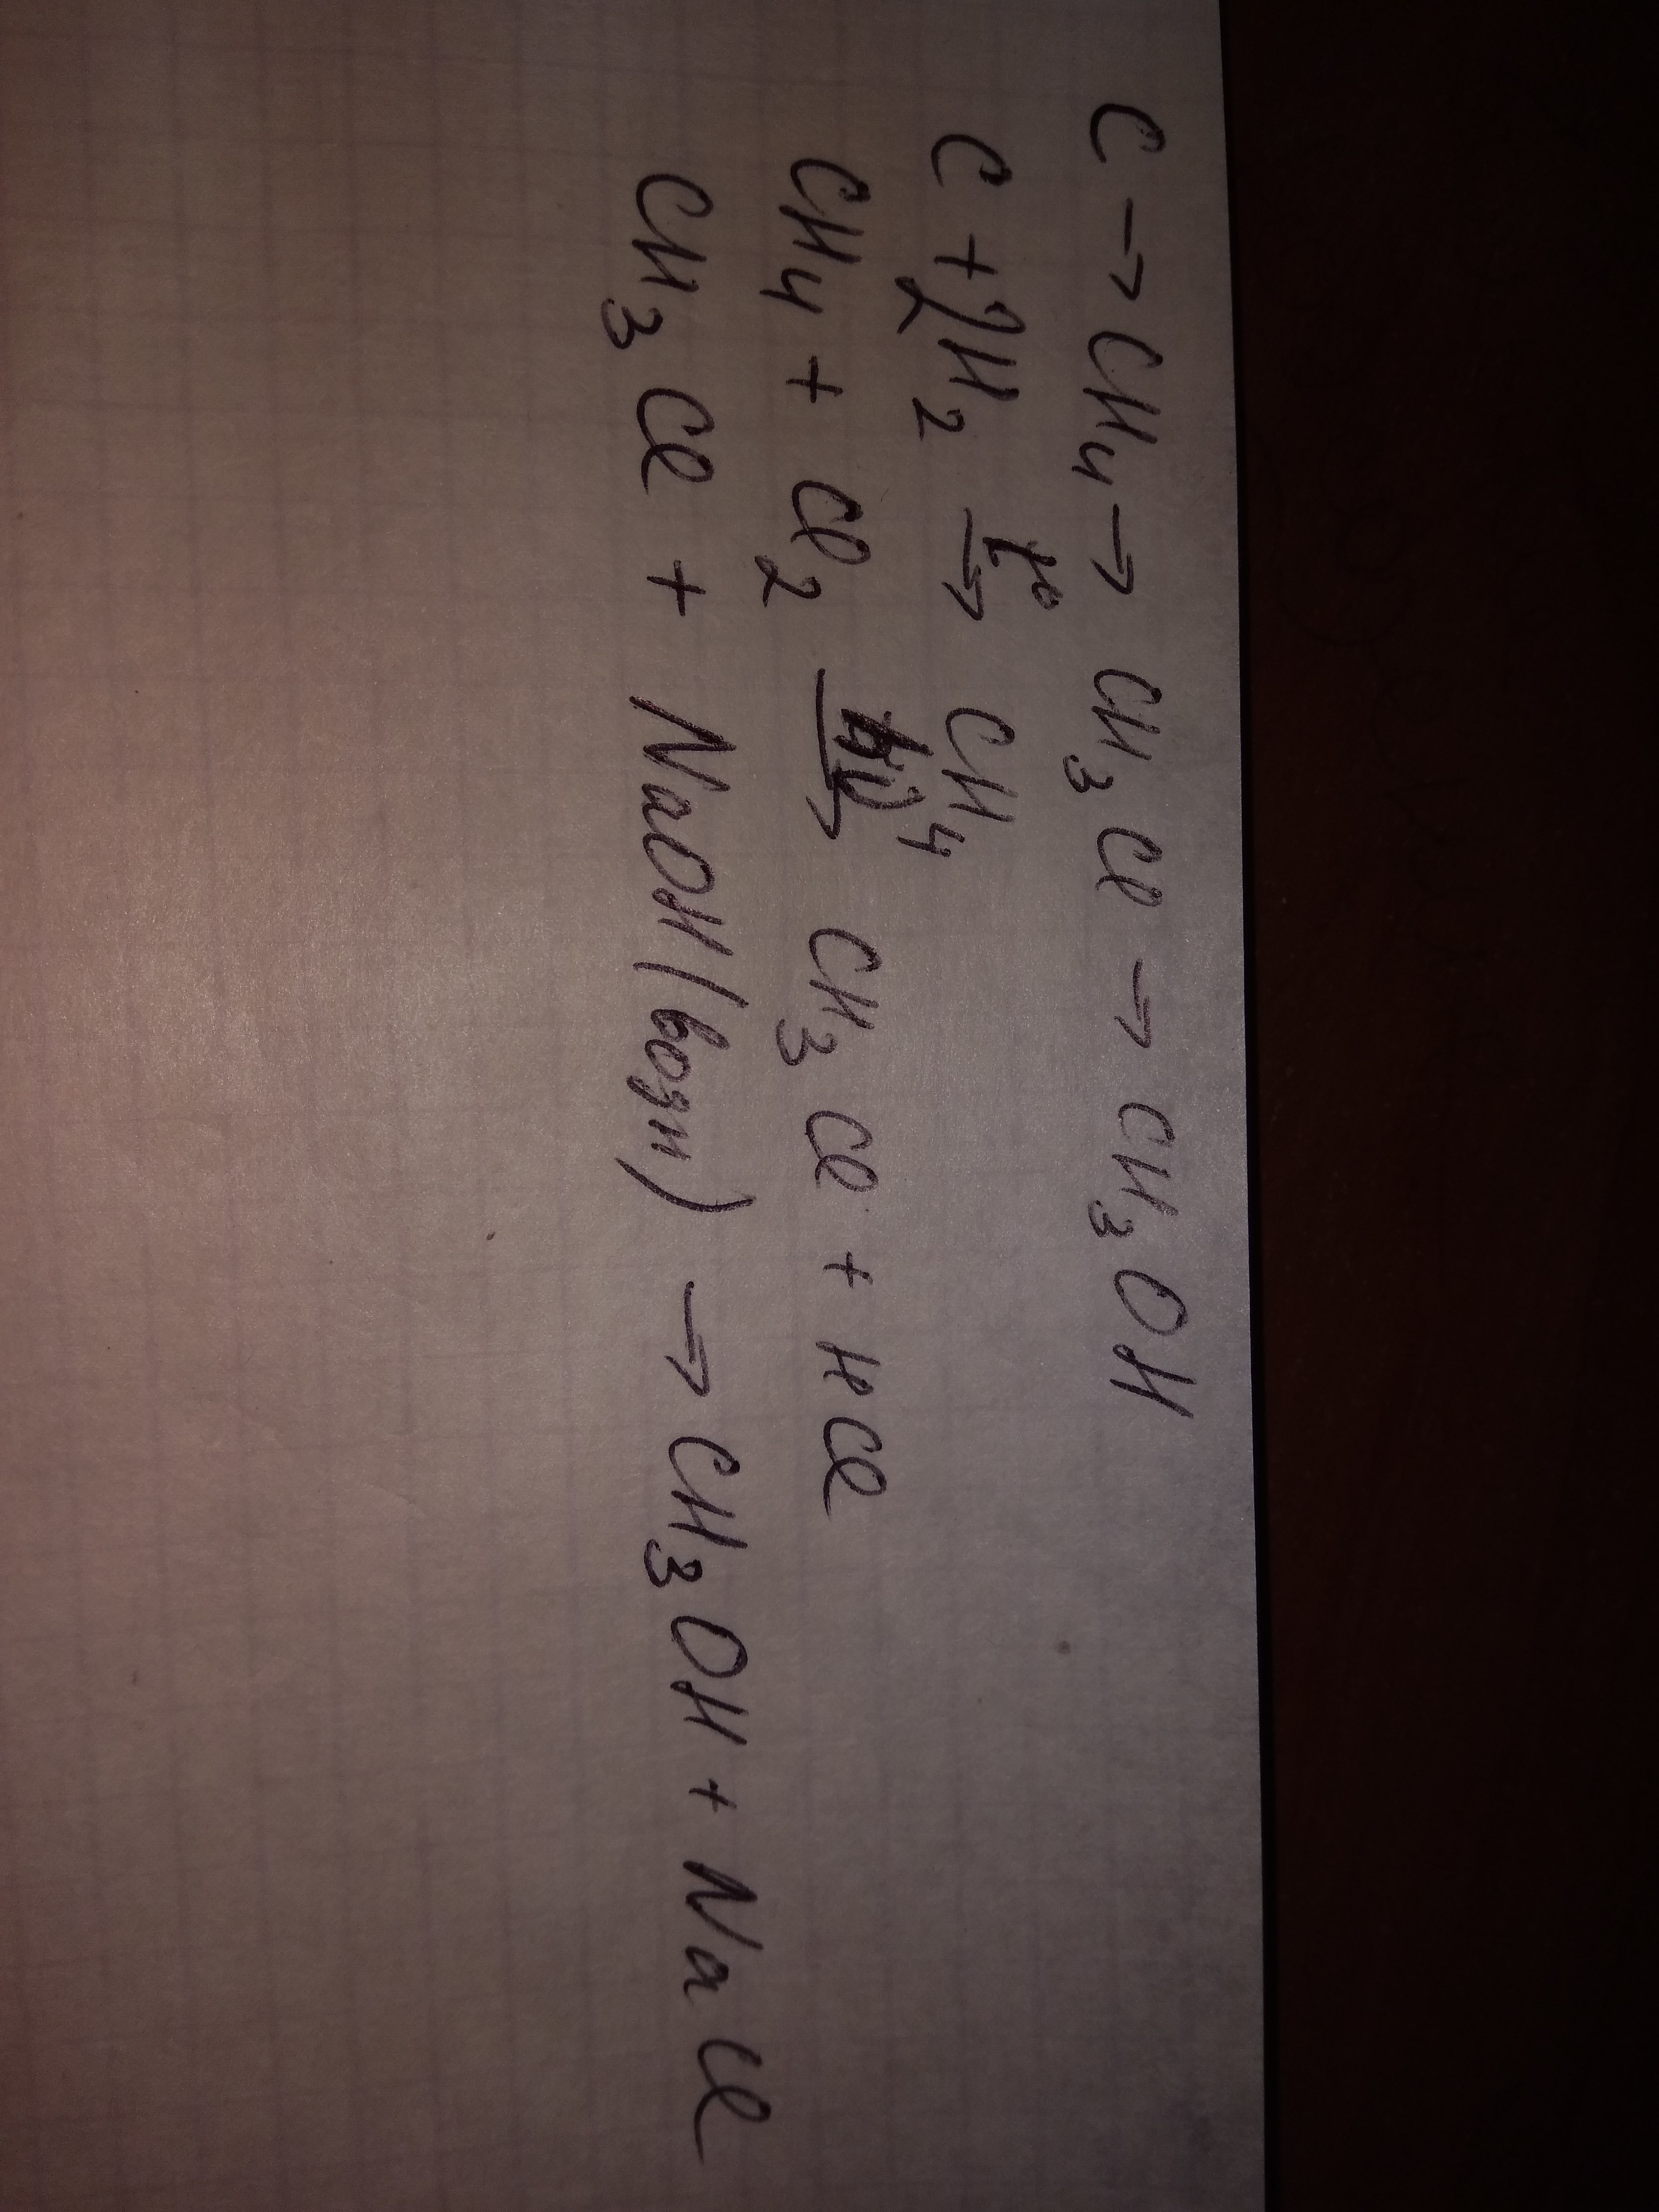 C → CH₄ → CH₃Cl → CH₃OH
C + 2H₂ →t° CH₄
CH₄ + Cl₂ →hν CH₃Cl + HCl
CH₃Cl + NaOH(водн) → CH₃OH + NaCl